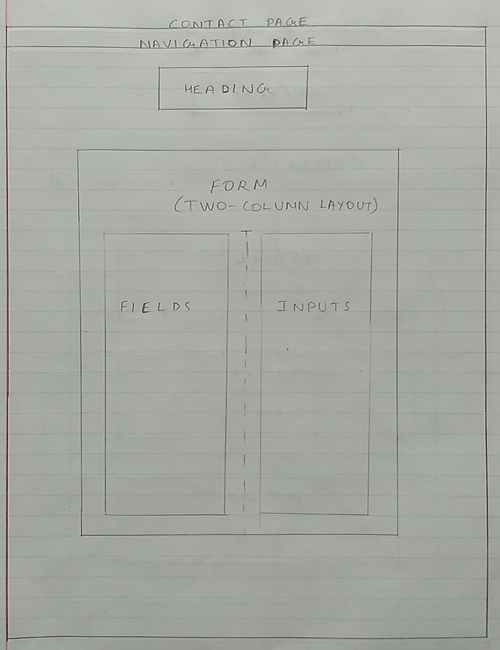 CONTACT PAGE
NAVIGATION PAGE
HEADING
FORM
(TWO-COLUMN LAYOUT)
FIELDS INPUTS